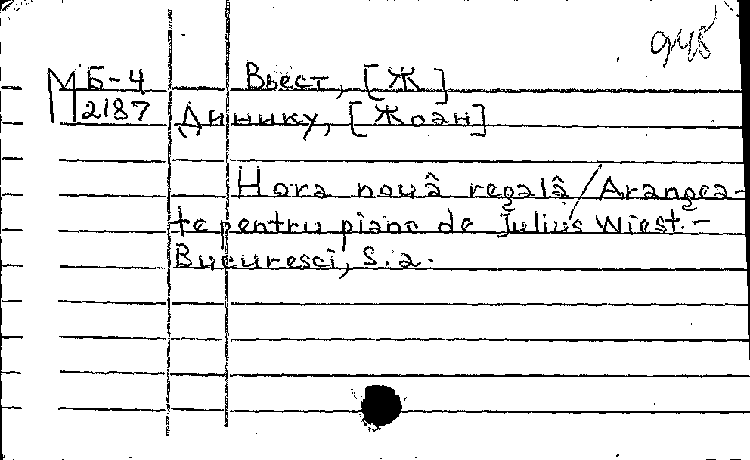 948
М Б-4 Вьест, [Ж]
2187 Динику, [Жоан]
Hora nouâ regalâ / Arangea-
te pentru piano de Julius Wiest. –
Bucuresci, s.a.